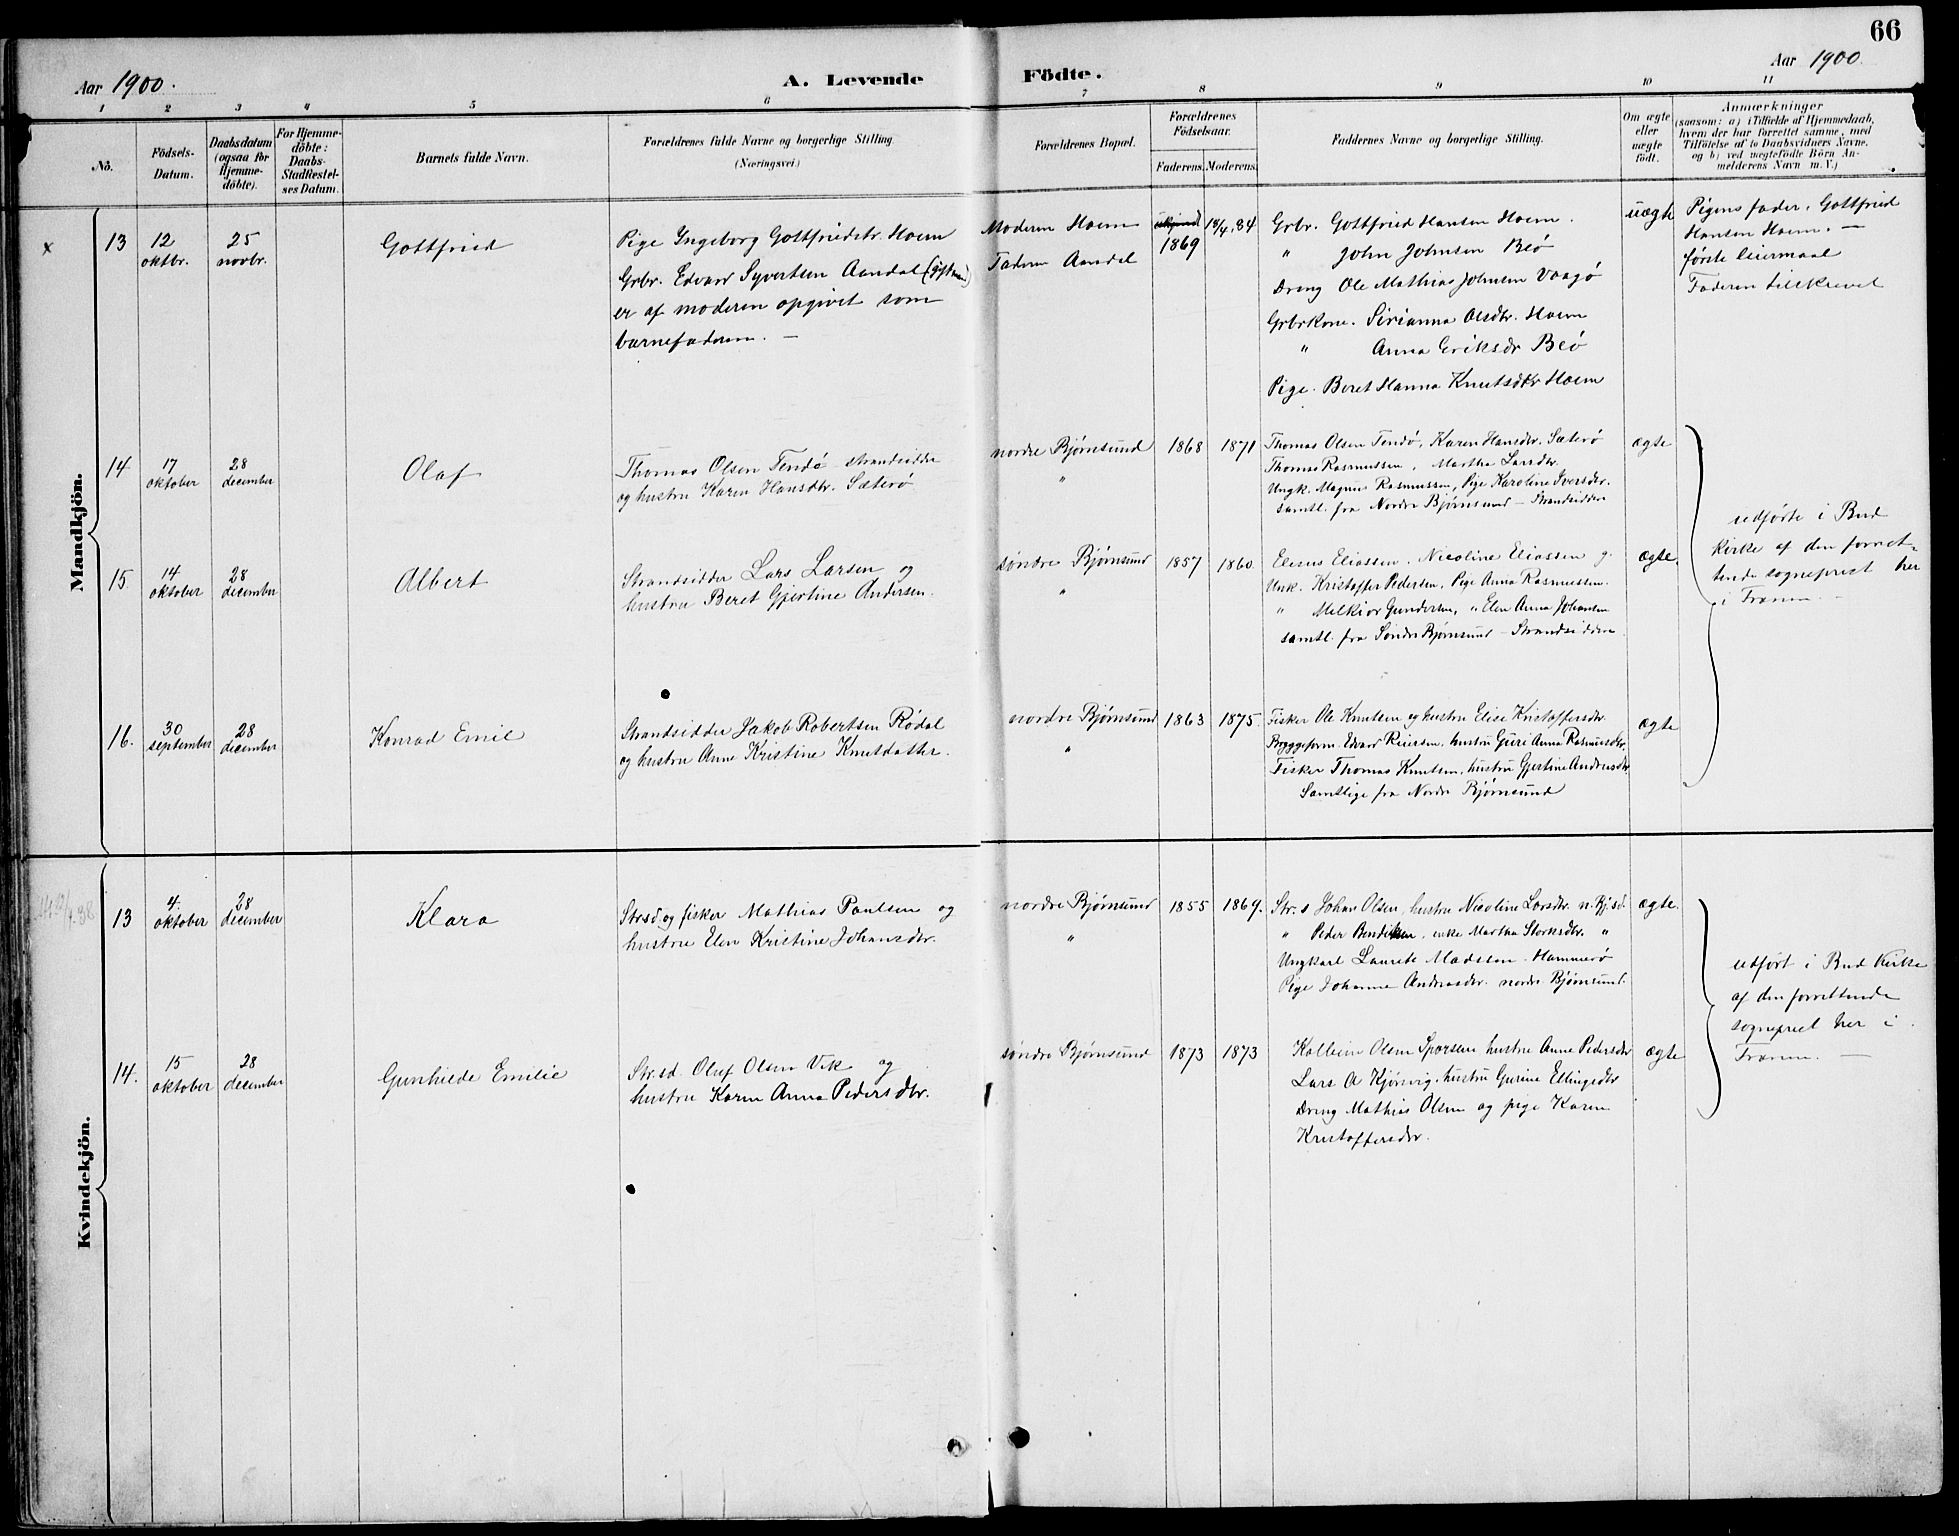 66
Aar 1900.
A. Levende Födte.
Aar 1900
1 2 3 4 5 6 7 8 9 10 11
No.
Födsels-
Datum.
Daabsdatum
(ogsaa for
Hjemme-
döbte).
For Hjemme-
döbte:
Daabs-
Stadfæstel-
ses Datum.
Barnets fulde Navn.
Forældrenes fulde Navne og borgerlige Stilling.
(Næringsvei.)
Forældrenes Bopæl.
Forældrenes
Födselsaar.
Faderens. Moderens.
Faddernes Navne og borgerlige Stilling.
Om ægte
eller
uægte
födt.
Anmærkninger
(saasom: a) i Tilfælde af Hjemmedaab,
hvem der har forrettet samme, med
Tilföielse af to Daabsvidners Navne,
og b) ved uægtefödte Börn An-
melderens Navn m. V.)
Mandkjön.
x 13
12
oktbr.
25
novbr.
Gottfried
Pige Ingeborg Gottfriedstr. Hoem
Grbr. Edvard Syvertsen Aandal (gift man)
er af moderen opgivet som
barnefaderen. —
Moderen Hoem
Faderen Aandal
ukjendt
1869
18/4. 84
Grbr. Gottfried Hansen Hoem.
" John Johnsen Beö
Dreng Ole Mathias Johnsen Vaagö
Grbrkone. Sirianna Olsdtr. Hoem
" Anna Eriksdr Beö
Pige. Beret Hanna Knutsdtr Hoem
uægte
Pigens fader. Gottfried
Hansen Hoem. —
første leiermaal
Faderen tilskrevet
14
17
oktober
28
december
Olaf
Thomas Olsen Tendö strandsidder
og hustru Karen Hansdtr. Sæterö
nordre Bjørnsund
"
1868
1871
Thomas Olsen Tendö, Karen Hansdtr. Sæterö
Thomas Rasmussen, Martha Larsdtr.
Ungk. Magnus Rasmussen, Pige Karoline Iversdtr.
samtl. fra Nordre Bjørnsund — Strandsiddere
ægte
15.
14
oktober
28
december
Albert
Strandsidder Lars Larsen og
hustru Beret Gjertine Andersen.
søndre Bjørnsund
"
1857
1860.
Elesus Eliassen, Nicoline Eliassen g.
Unk. Kristoffer Pedersen, Pige Anna Rasmussen.
" Melkior Gundersen, " Elen Anna Johansen
samtl. fra Søndre Bjørnsund — Strandsiddere
ægte.
udførte i Bud
Kirke af den forret-
tende sogneprest her
i Fræna. —
16.
30
september
28
december
Konrad Emil
Strandsidder Jakob Robertsen Rødal
og hustru Anne Kristine Knutdatter.
nordre Bjørnsund
"
1863
1875.
Fisker Ole Knutsen og hustru Elise Kristoffersdtr.
Byggeform. Edvard Reiersen, hustru Guri Anna Rasmusdtr.
Fisker Thomas Knutsen, hustru Gjertine Andersdtr.
Samtlige fra Nordre Bjørnsund
ægte
Kvindekjön.
13
4.
oktober
28
december
Klara
Strsd. og fisker Mathias Paulsen og
hustru Elen Kristine Johansdtr.
nordre Bjørnsund
"
1855
1869.
Str. s Johan Olsen, hustru Nicoline Larsdtr. n. Bj.sd.
" Peder Bendiksen, enke Martha Storksdtr. "
Ungkarl Laurits Madssen Hammerö
Pige Johanna Andreasdtr. nordre Bjørnsund.
ægte.
udført i Bud Kirke
af den forrettende
sogneprest her i
Fræna. —
14.
15
oktober
28
december
Gunhilde Emilie
Str.sd. Oluf Olsen Vik og
hustru Karen Anna Pedersdtr.
søndre Bjørnsund
1873
1873
Kolbein Olsen Sporsem hustru Anne Pedersdtr
Lars O Kjørvig, hustru Gurine Ellingsdtr
Dreng Mathias Olsen og pige Karen
Kristoffersdtr.
ægte